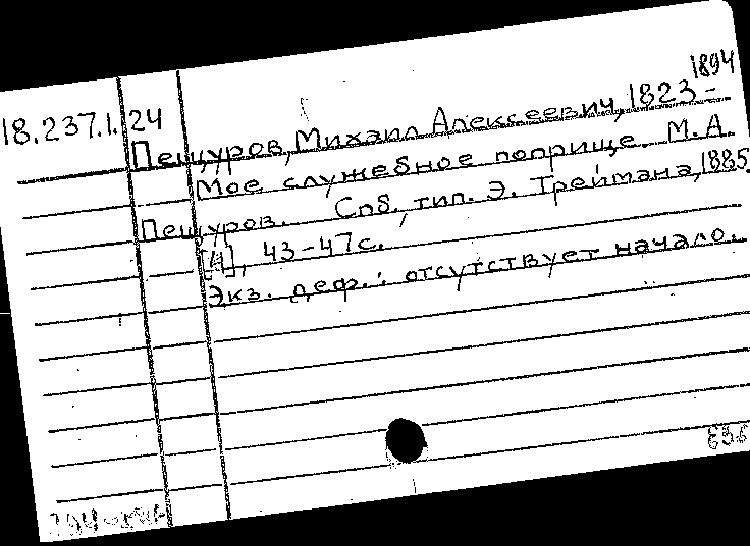 1894
18.237.1.24
Пещуров, Михаил Алексеевич, 1823-
Мое служебное поприще. М.А.
Пещуров. Спб., тип. Э. Треймана, 1885.
[4], 43-47с.
Экз. деф.: отсутствует начало.